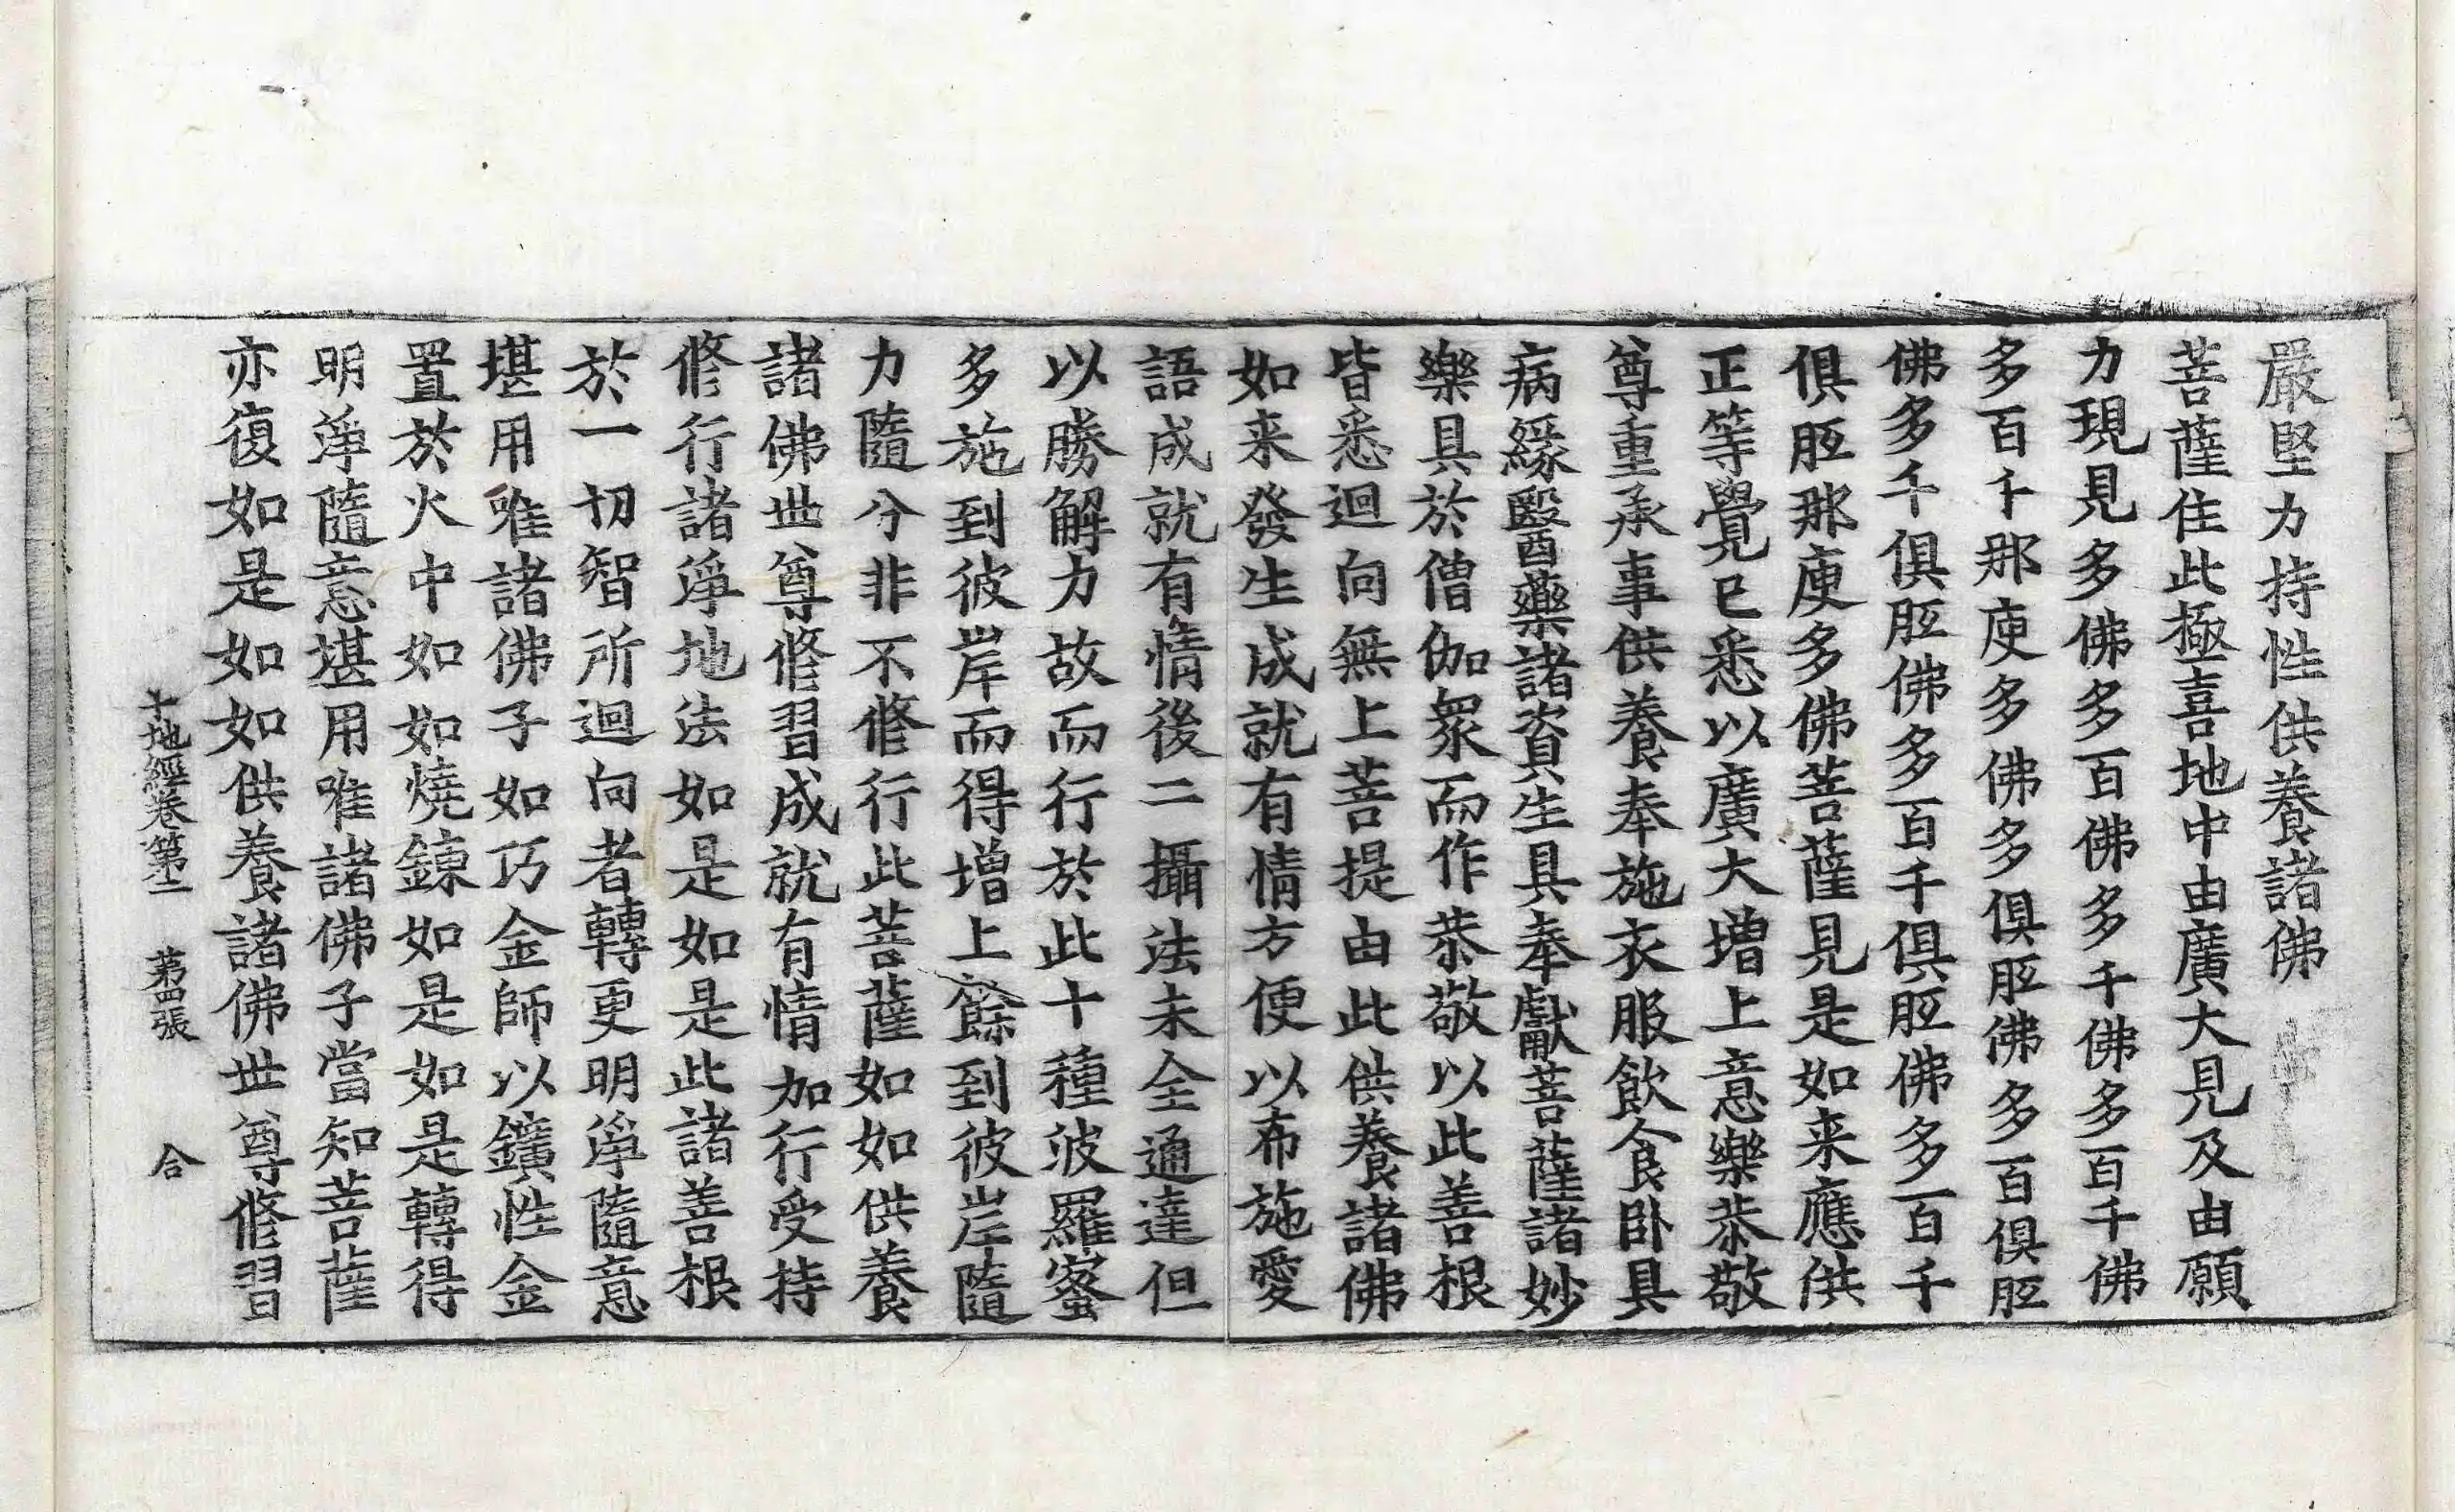 嚴堅力持性供養諸佛
菩薩住此極喜地中由廣大見及由願
力現見多佛多百佛多千佛多百千佛
多百千那庾多佛多俱胝佛多百俱胝
佛多千俱胝佛多百千俱胝佛多百千
俱胝那庾多佛菩薩見是如来應供
正等覺已悉以廣大增上意樂恭敬
尊重承事供養奉施衣服飲食卧具
病緣醫藥諸資生具奉獻菩薩諸妙
樂具於僧伽衆而作恭敬以此善根
皆悉迴向無上菩提由此供養諸佛
如来發生成就有情方便以布施愛
語成就有情後二攝法未全通達但
以勝解力故而行於此十種波羅蜜
多施到彼岸而得增上餘到彼岸隨
力隨分非不修行此菩薩如如供養
諸佛世尊修習成就有情加行受持
修行諸淨地法如是如是此諸善根
於一切智所迴向者轉更明淨隨意
堪用唯諸佛子如巧金師以鑛性金
置於火中如如燒鍊如是如是轉得
明淨隨意堪用唯諸佛子當知菩薩
亦復如是如如供養諸佛世尊修習
十地經卷第二　第四張　合